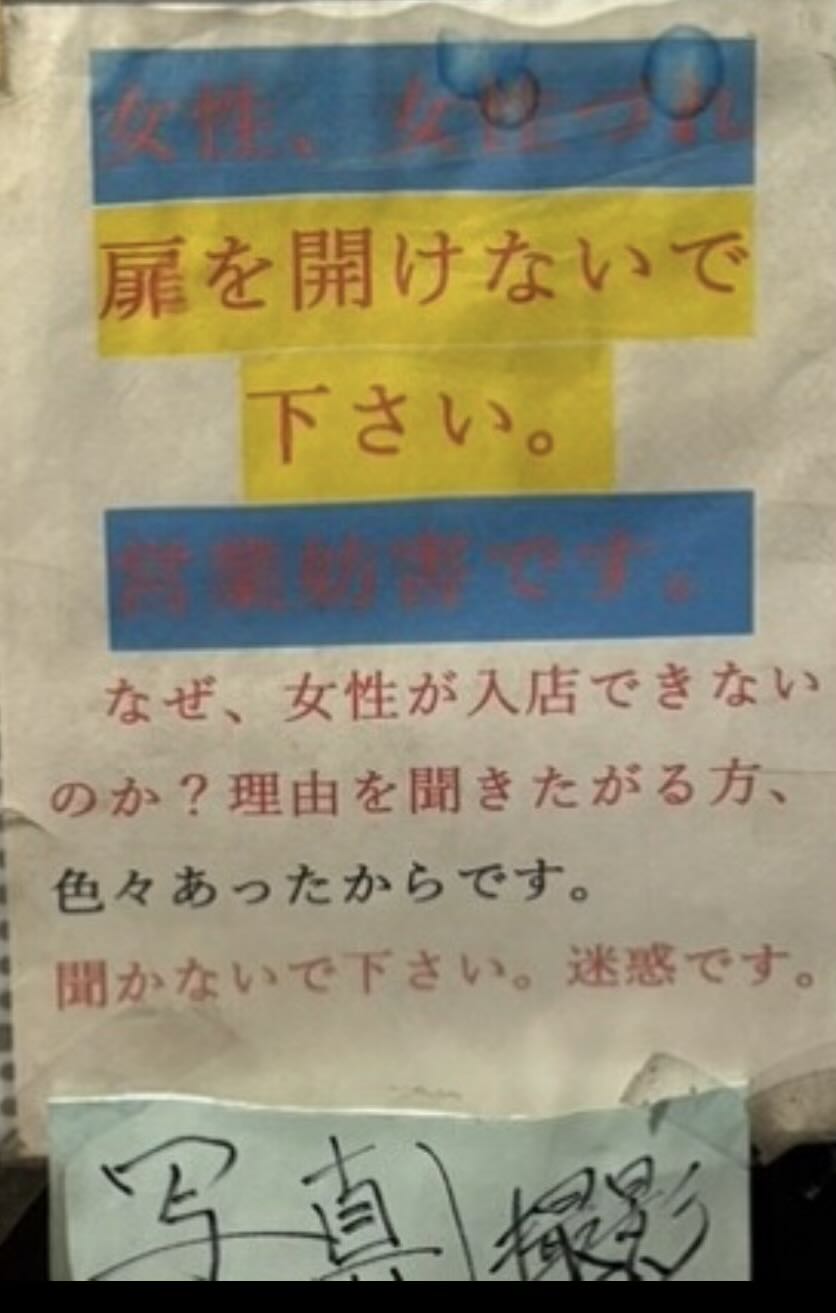 女性、女性づれ
扉を開けないで
下さい。
営業妨害です。
なぜ、女性が入店できない
のか？理由を聞きたがる方、
色々あったからです。
聞かないで下さい。迷惑です。
写真撮影